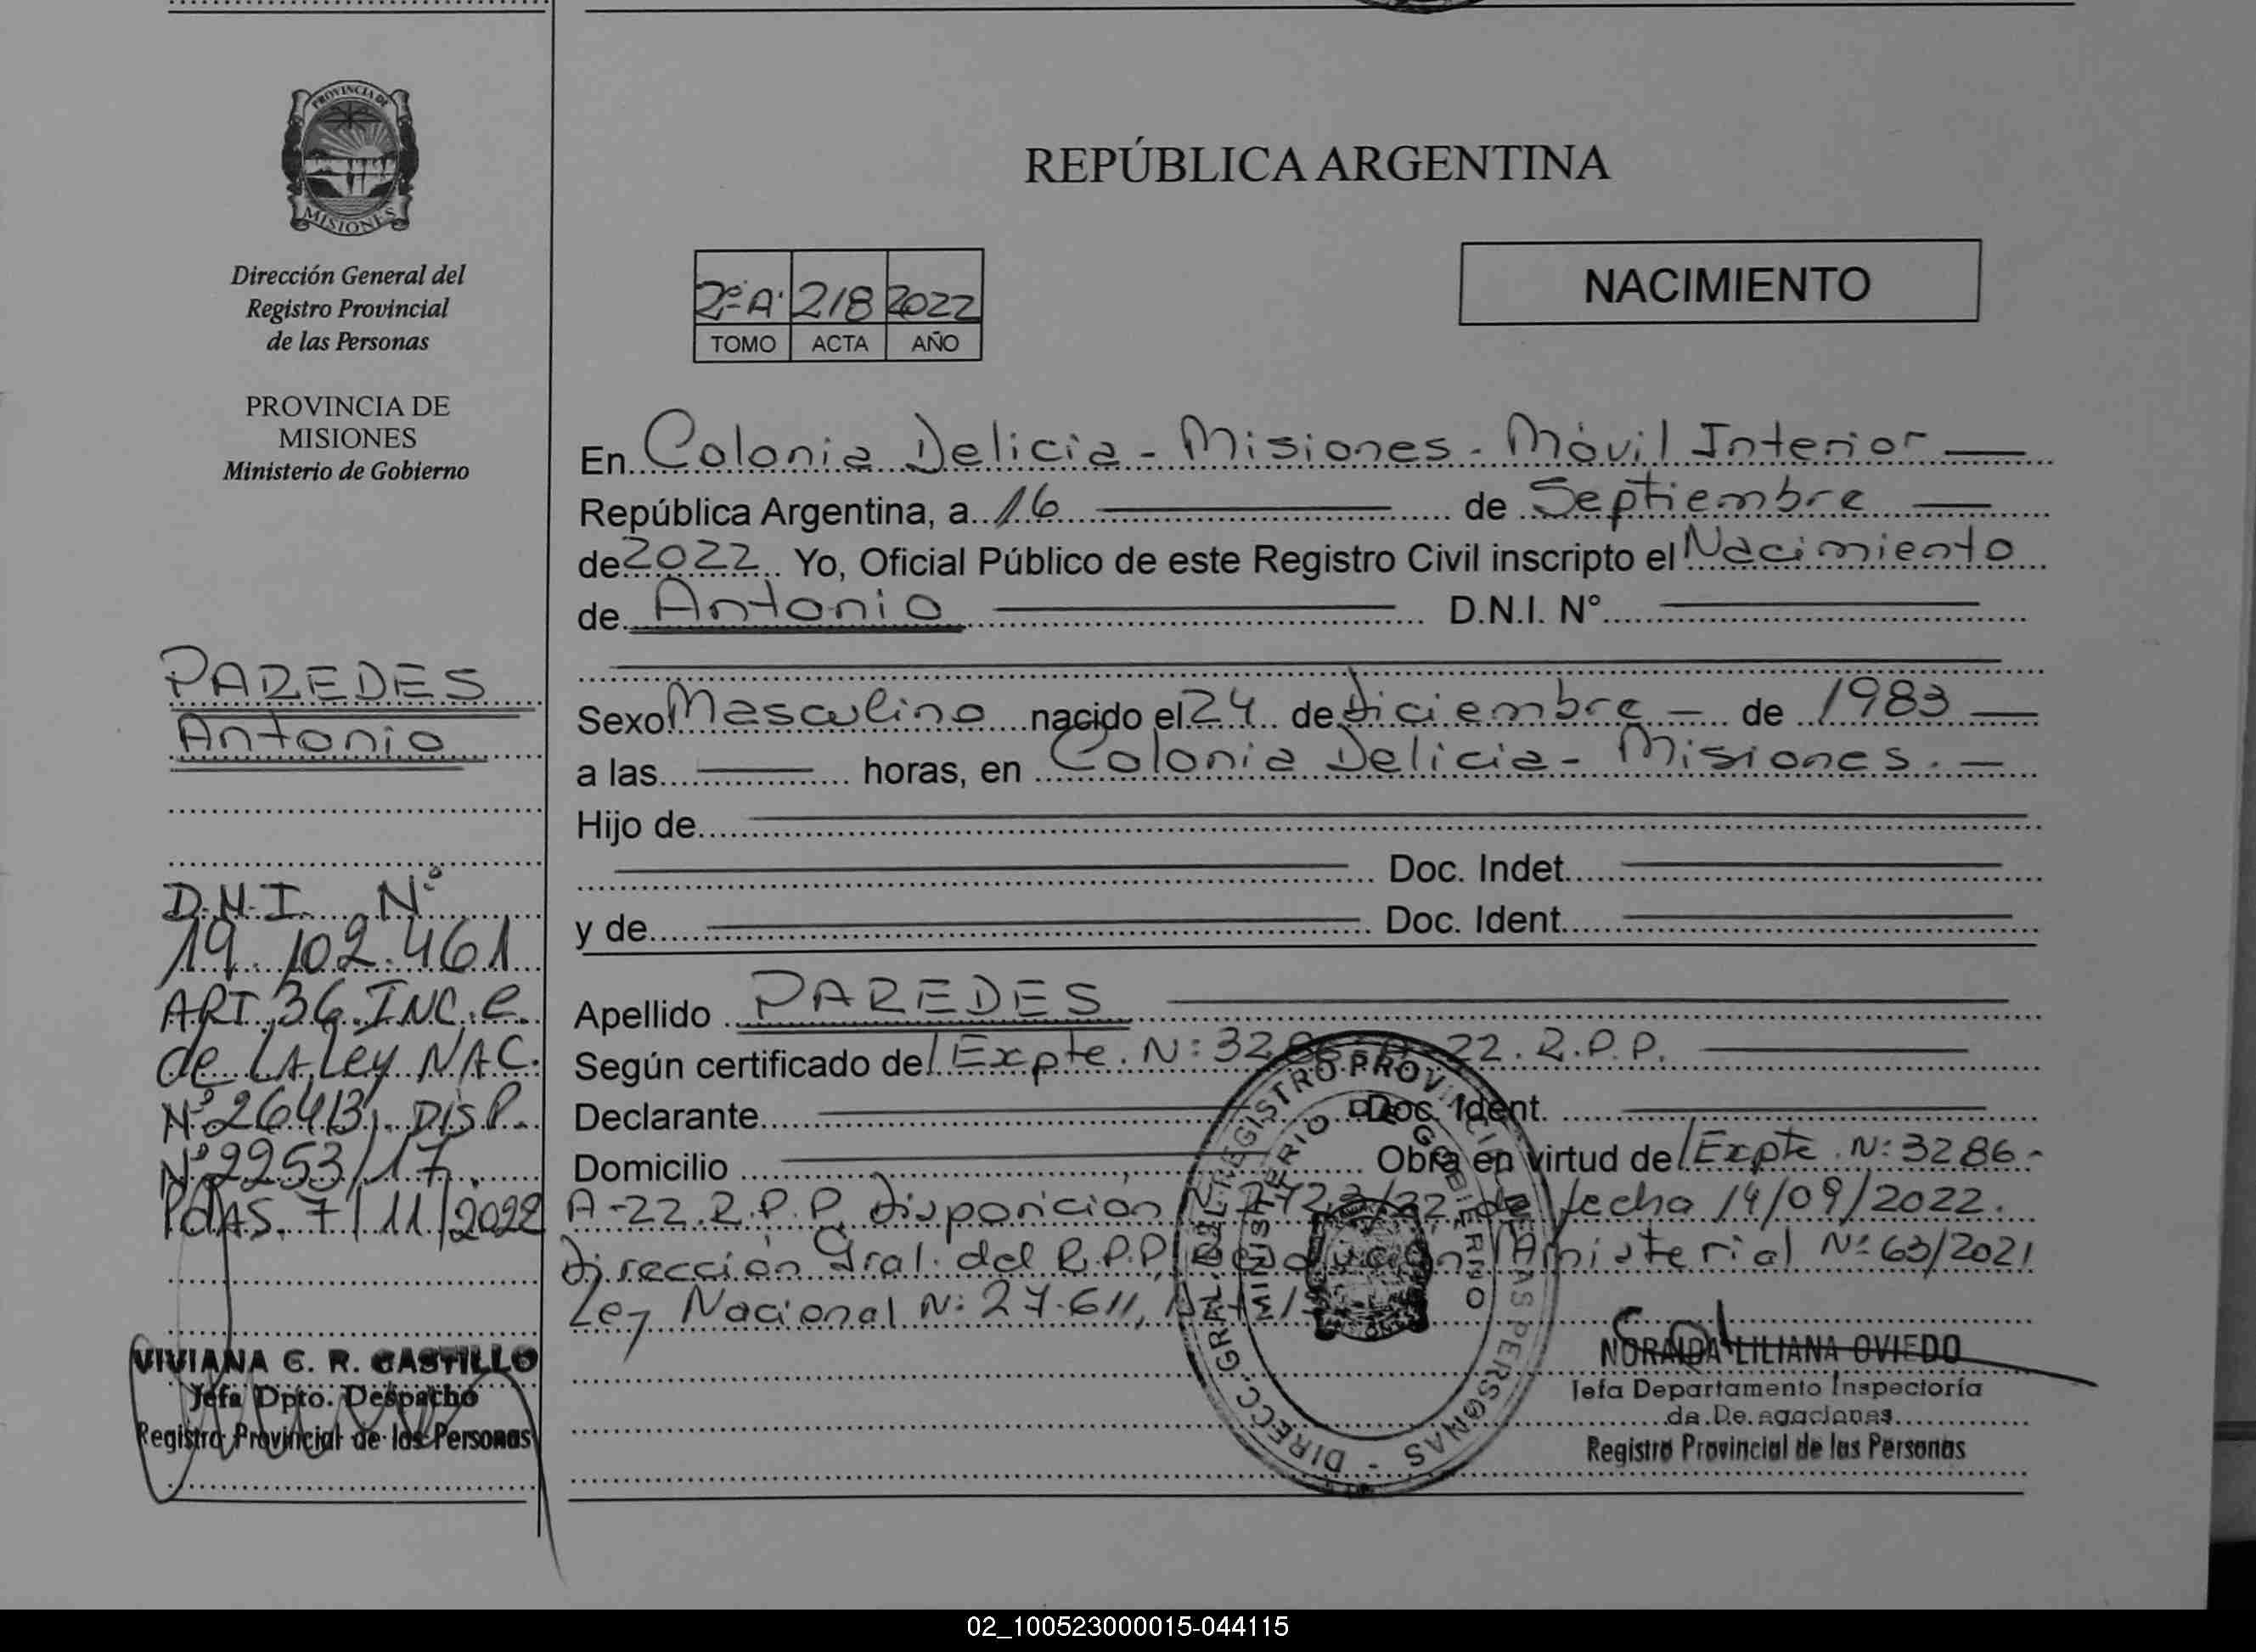 PROVINCIA DE
MISIONES
Dirección General del
Registro Provincial
de las Personas
PROVINCIA DE
MISIONES
Ministerio de Gobierno
PAREDES
Antonio
D.N.I. Nº
19.102.461
ART. 36. INC. e.
de LA Ley NAC.
Nº 26413, DISP.
Nº 2253/17.
Pdas. 7/11/2022
VIVIANA G. R. CASTILLO
Jefa Dpto. Despacho
Registro Provincial de las Personas
REPÚBLICA ARGENTINA
2º A 218 2022
TOMO ACTA AÑO
NACIMIENTO
En Colonia Delicia - Misiones - Móvil Interior
República Argentina, a 16 de Septiembre
de 2022 Yo, Oficial Público de este Registro Civil inscripto el Nacimiento
de Antonio D.N.I. N°
Sexo Masculino nacido el 24 de diciembre de 1983
a las horas, en Colonia Delicia - Misiones.
Hijo de
Doc. Indet.
y de Doc. Ident.
Apellido PAREDES
Según certificado del Expte. N: 3286-A-22. R.P.P.
Declarante Doc. Ident.
Domicilio Obra en virtud del Expte. N: 3286-
A-22. R.P.P. Disposición de fecha 14/09/2022.
Dirección Gral. del R.P.P. Ministerial Nº 63/2021
Ley Nacional N: 27.611,
DIRECC. GRAL. DEL REGISTRO PROVINCIAL DE LAS PERSONAS -
MINISTERIO DE GOBIERNO
NORAIDA LILIANA OVIEDO
Jefa Departamento Inspectoría
de De egaciones
Registro Provincial de las Personas
02_100523000015-044115